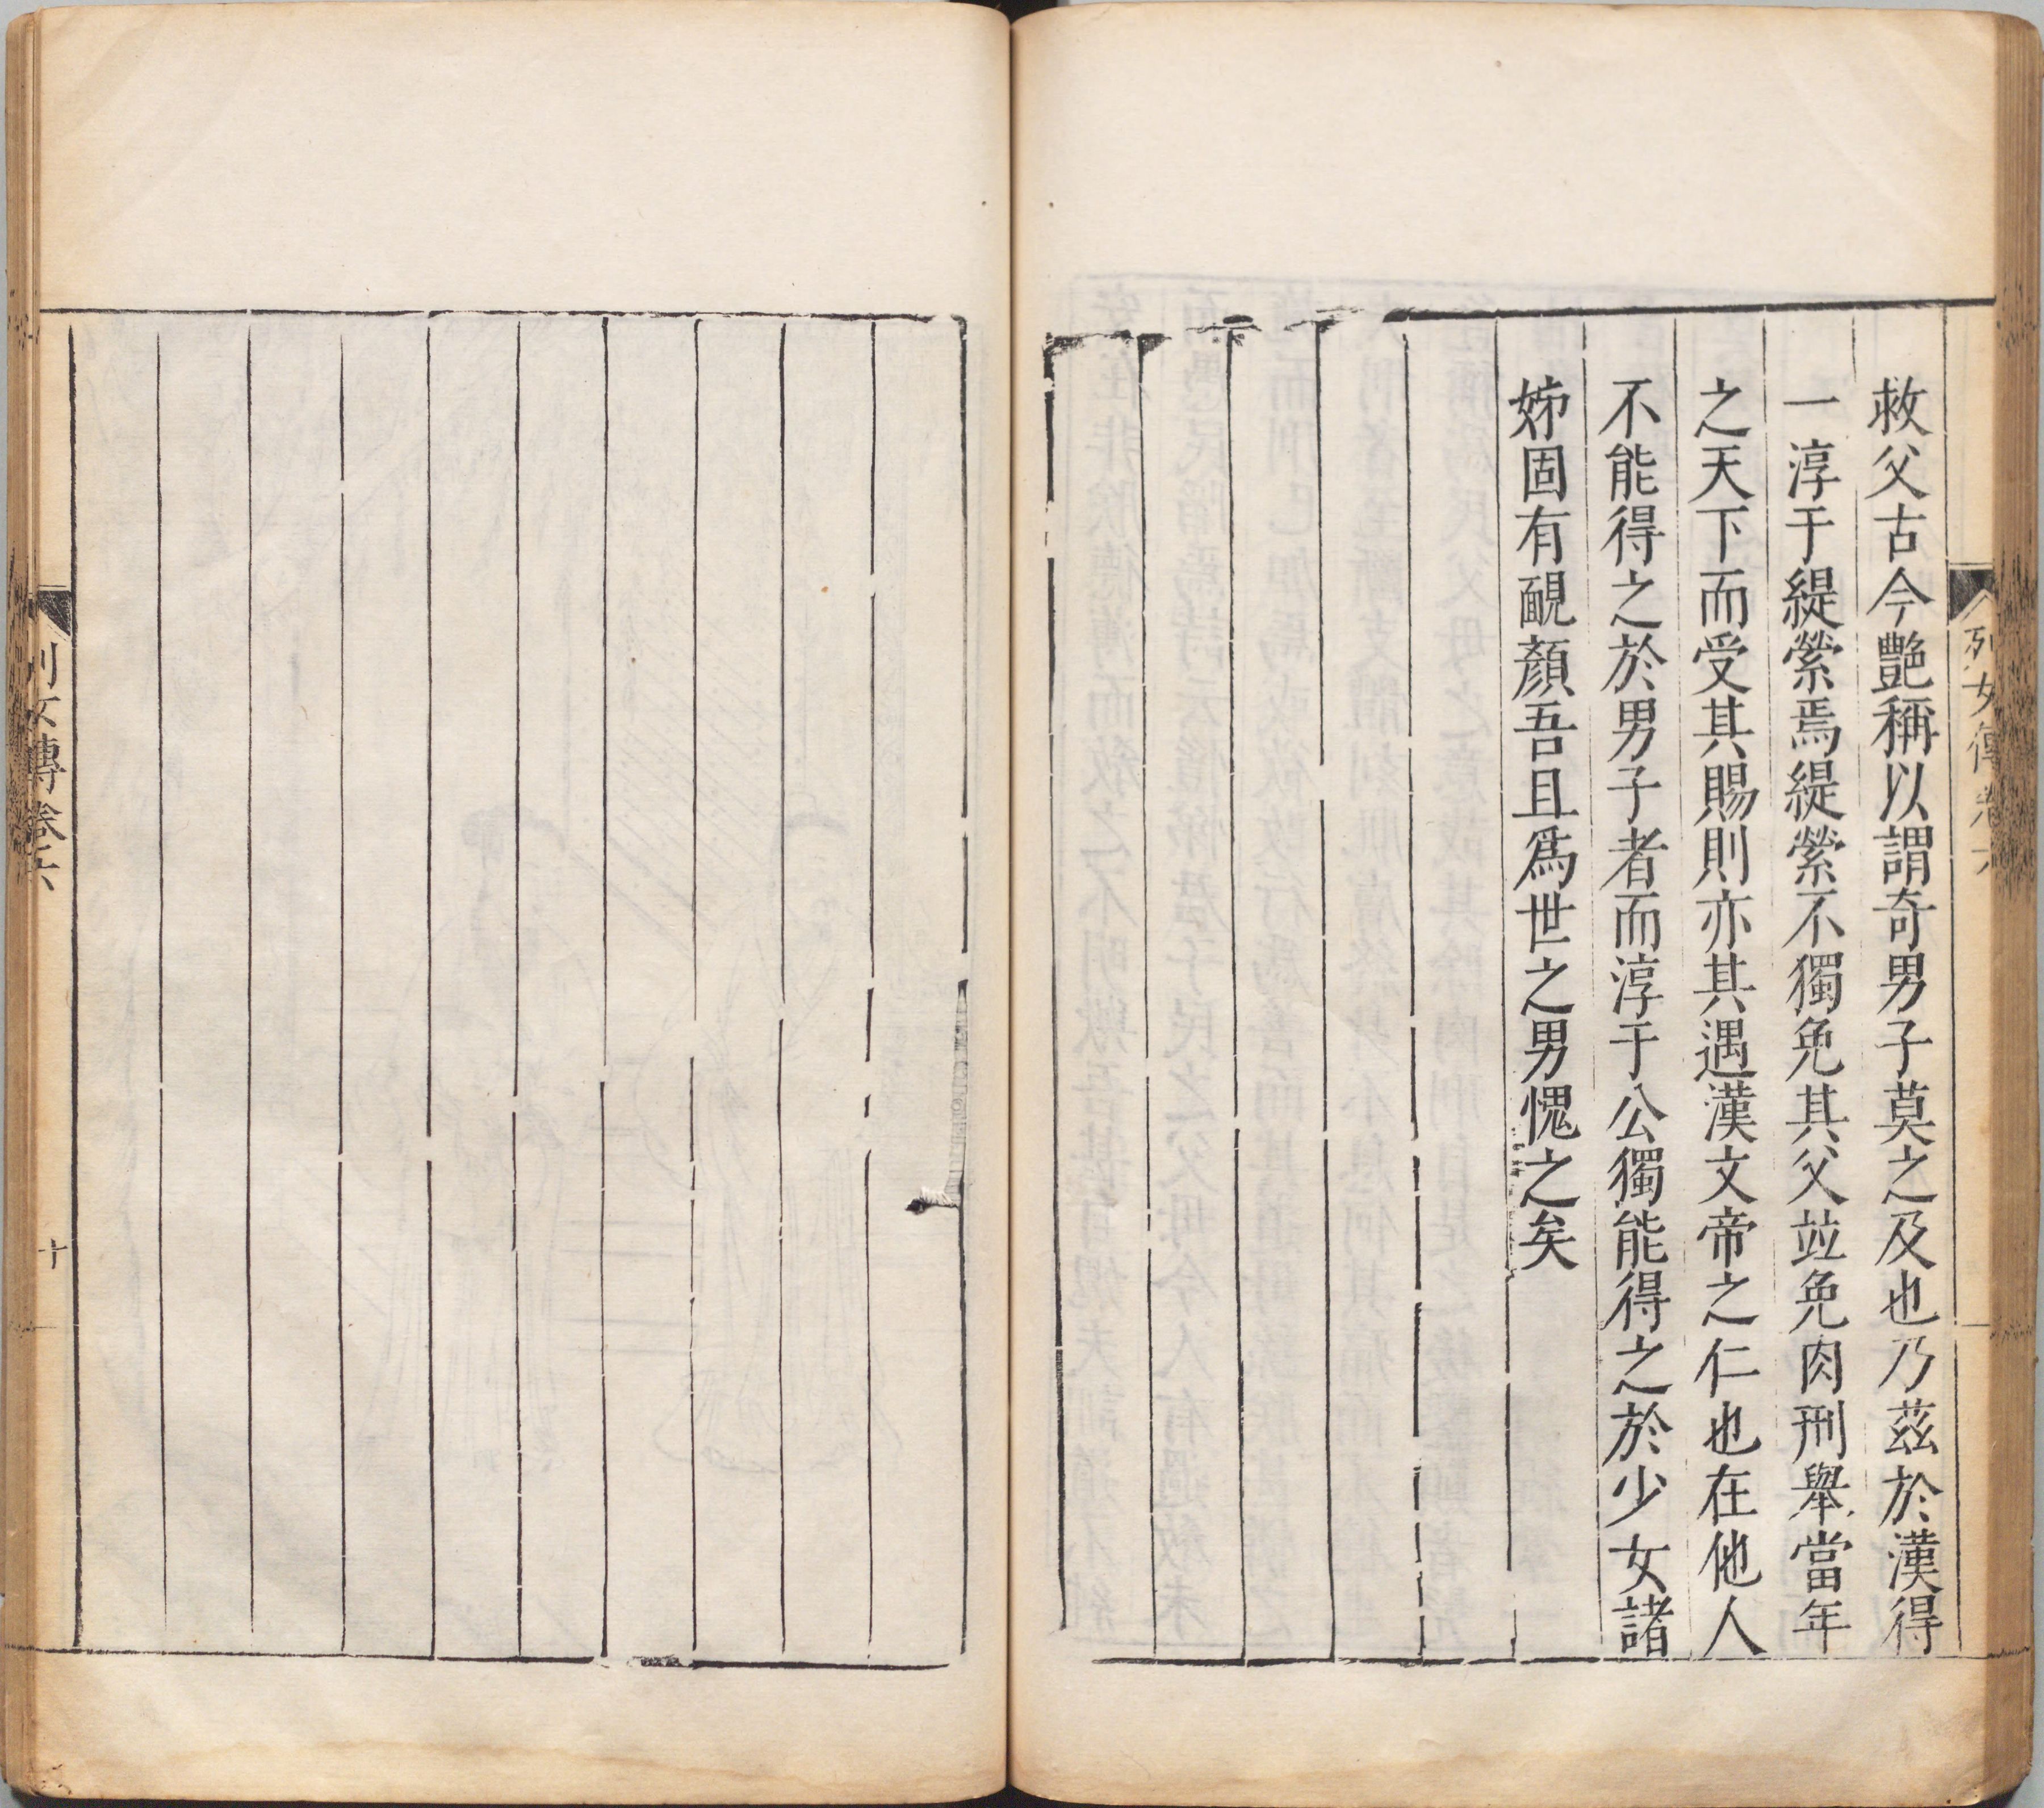 列女傳卷六
救父古今艷稱以謂奇男子莫之及也乃茲於漢得
一淳于緹縈焉緹縈不獨免其父竝免肉刑舉當年
之天下而受其賜則亦其遇漢文帝之仁也在他人
不能得之於男子者而淳于公獨能得之於少女諸
姊固有靦顏吾且爲世之男愧之矣
列女傳卷六
十